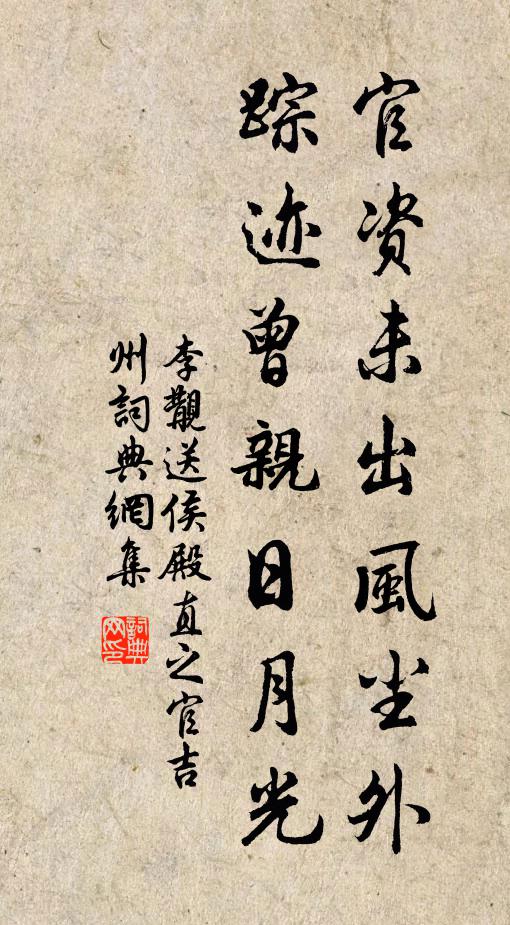 官資未出風尘外
踪迹曾親日月光
李覯送侯殿直之官吉
州詞典網集
詞典
网印